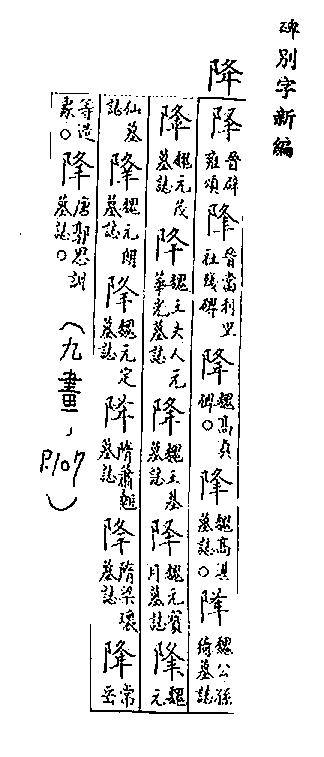 碑別字新編
降
降晉辟雍頌降晉當利里社殘碑降魏高貞碑○降魏高湛墓誌○降魏公孫猗墓誌
降魏元茂墓誌降魏王夫人元華光墓誌降魏王基墓誌降魏元寶月墓誌降魏元
仙墓誌降魏元朗墓誌降魏元定墓誌降隋蕭翹墓誌降隋梁瓌墓誌降常岳
等造象○降唐郭思訓墓誌○
(九畫,P.107)